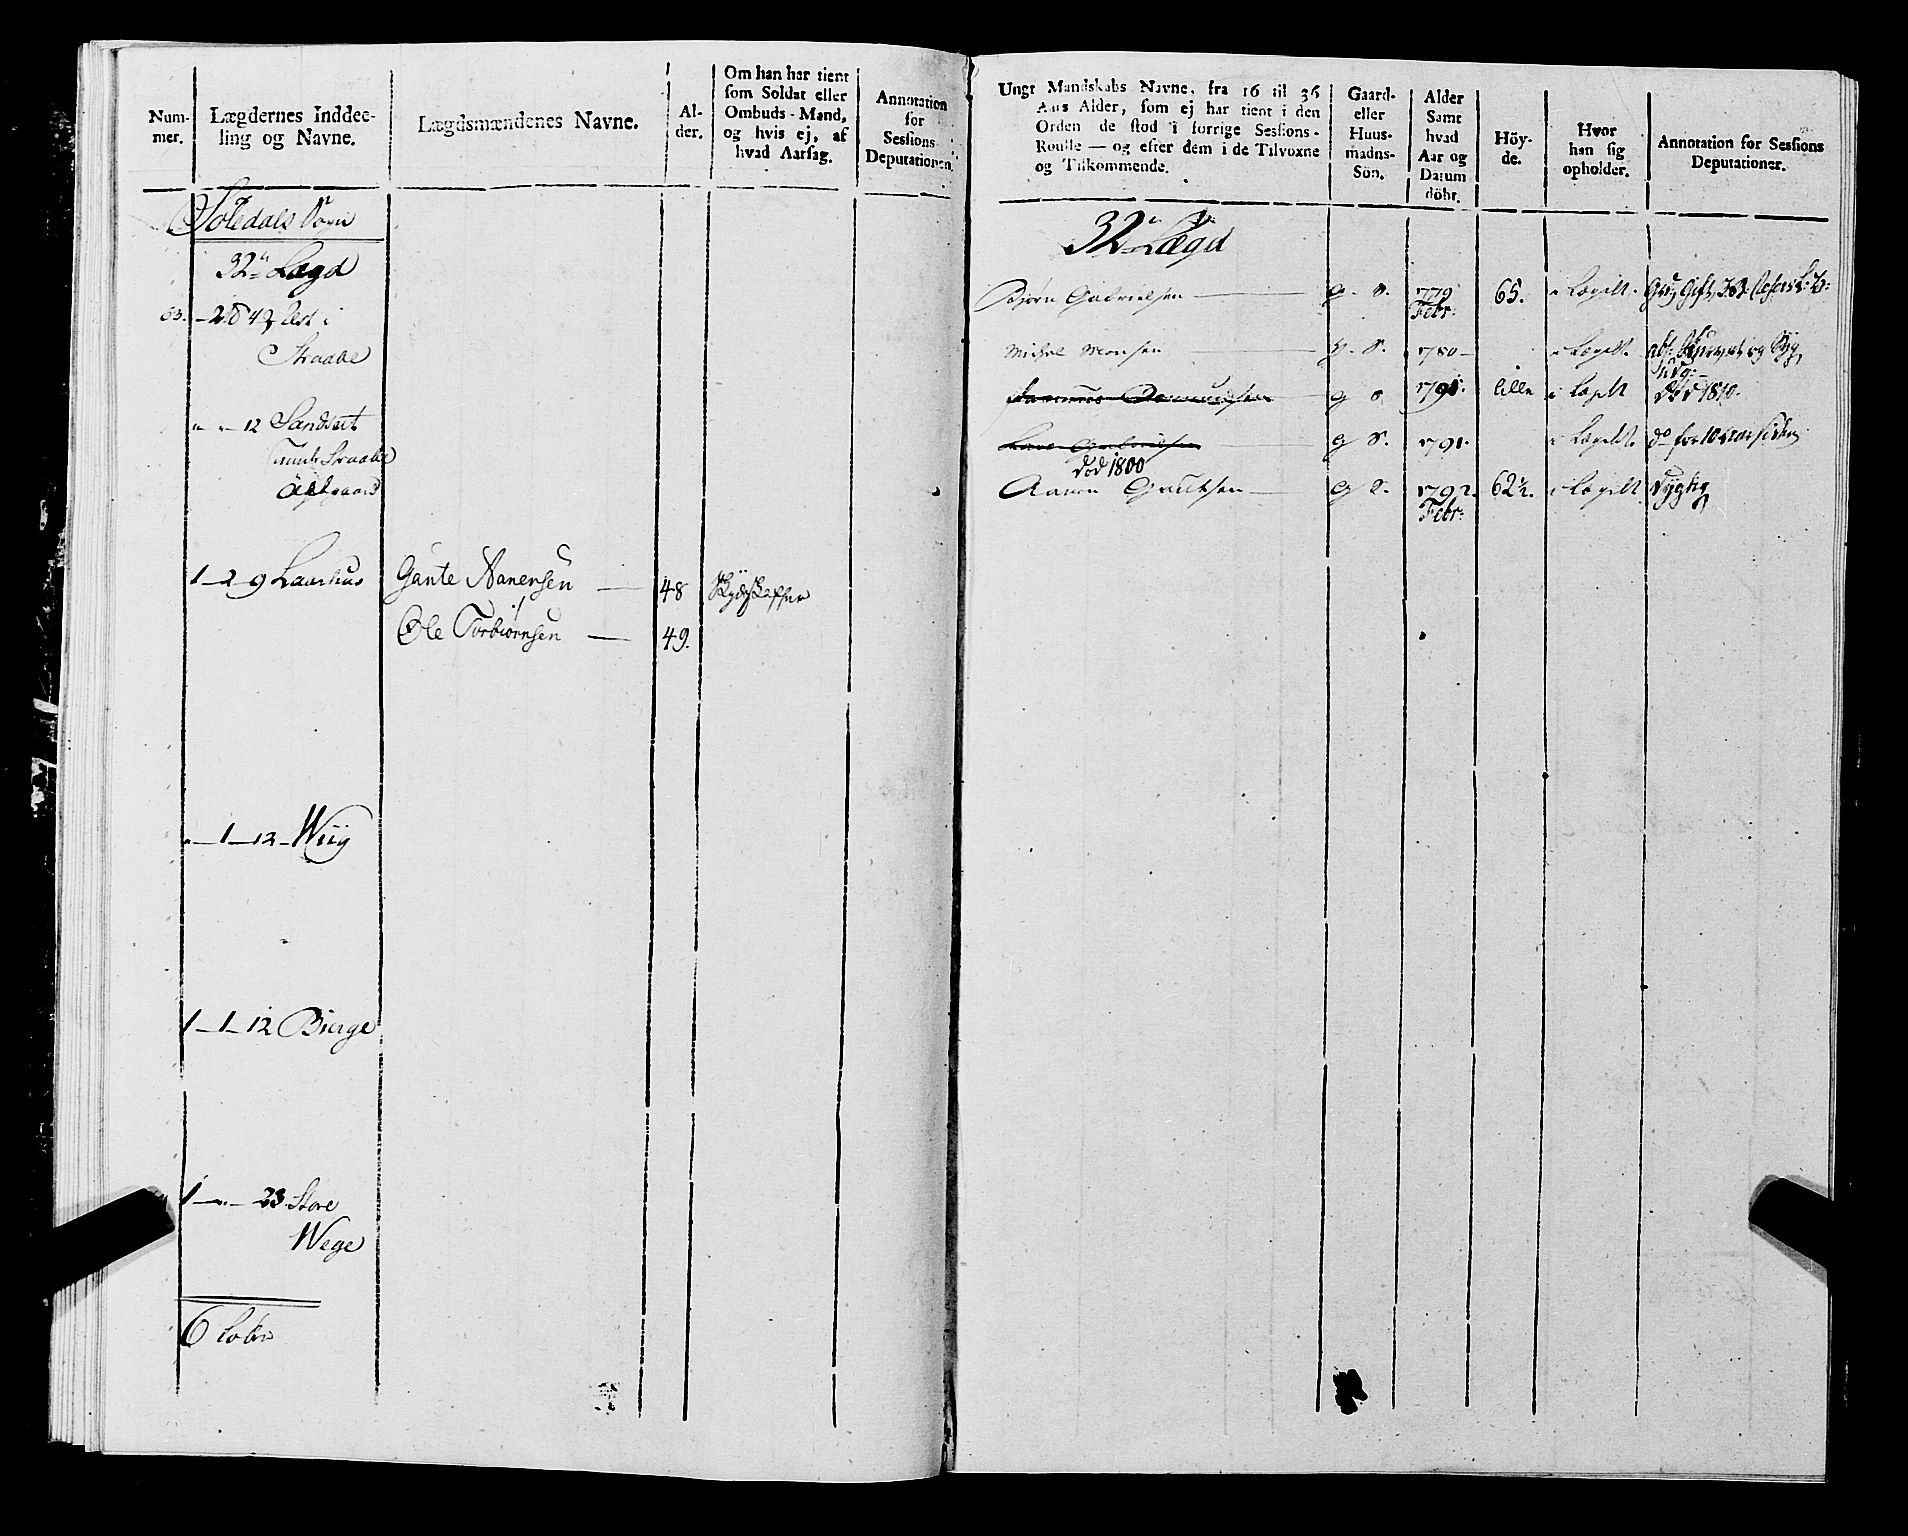 Num-
mer.
Lægdernes Inddee-
ling og Navne.
Lægdsmændenes Navne.
Al-
der.
Om han har tient
som Soldat eller
Ombuds-Mand,
og hvis ej, af
hvad Aarsag.
Annotation
for
Sessions
Deputationen.
Sogn
32te Lægd
63.
Straabe
12 Sandset
Straabe
1 — 2 — 9 Laurhus
Gunte Aanensen — 48
Ole Torbiørnsen — 49.
„ — 1 — 12 — Wiig
1 — 1 — 12 Bierge
1 — „ — 23 Store
Wege
6
Ungt Mandskabs Navne, fra 16 til 36
Aars Alder, som ej har tient i den
Orden de stod i forrige Sessions-
Roulle — og efter dem i de Tilvoxne
og Tilkommende.
Gaard-
eller
Huus-
madns-
Sön.
Alder
Samt
hvad
Aar og
Datum
döbt.
Höy-
de.
Hvor
han sig
opholder.
Annotation for Sessions
Deputationer.
32te Lægd
Biørn Gabrielsen — g. S. 1779 65. i Lægdt.
Febr:
Michel Monsen — g. S. 1780 i Lægdt.
g S 1791. lille i Lægdt død 1810.
g S. 1791. i Lægdt. do for 10 Aar siden
død 1800
Aanen Gautesen — g S. 1792. 62½. i Lægdt dygtig
Febr: